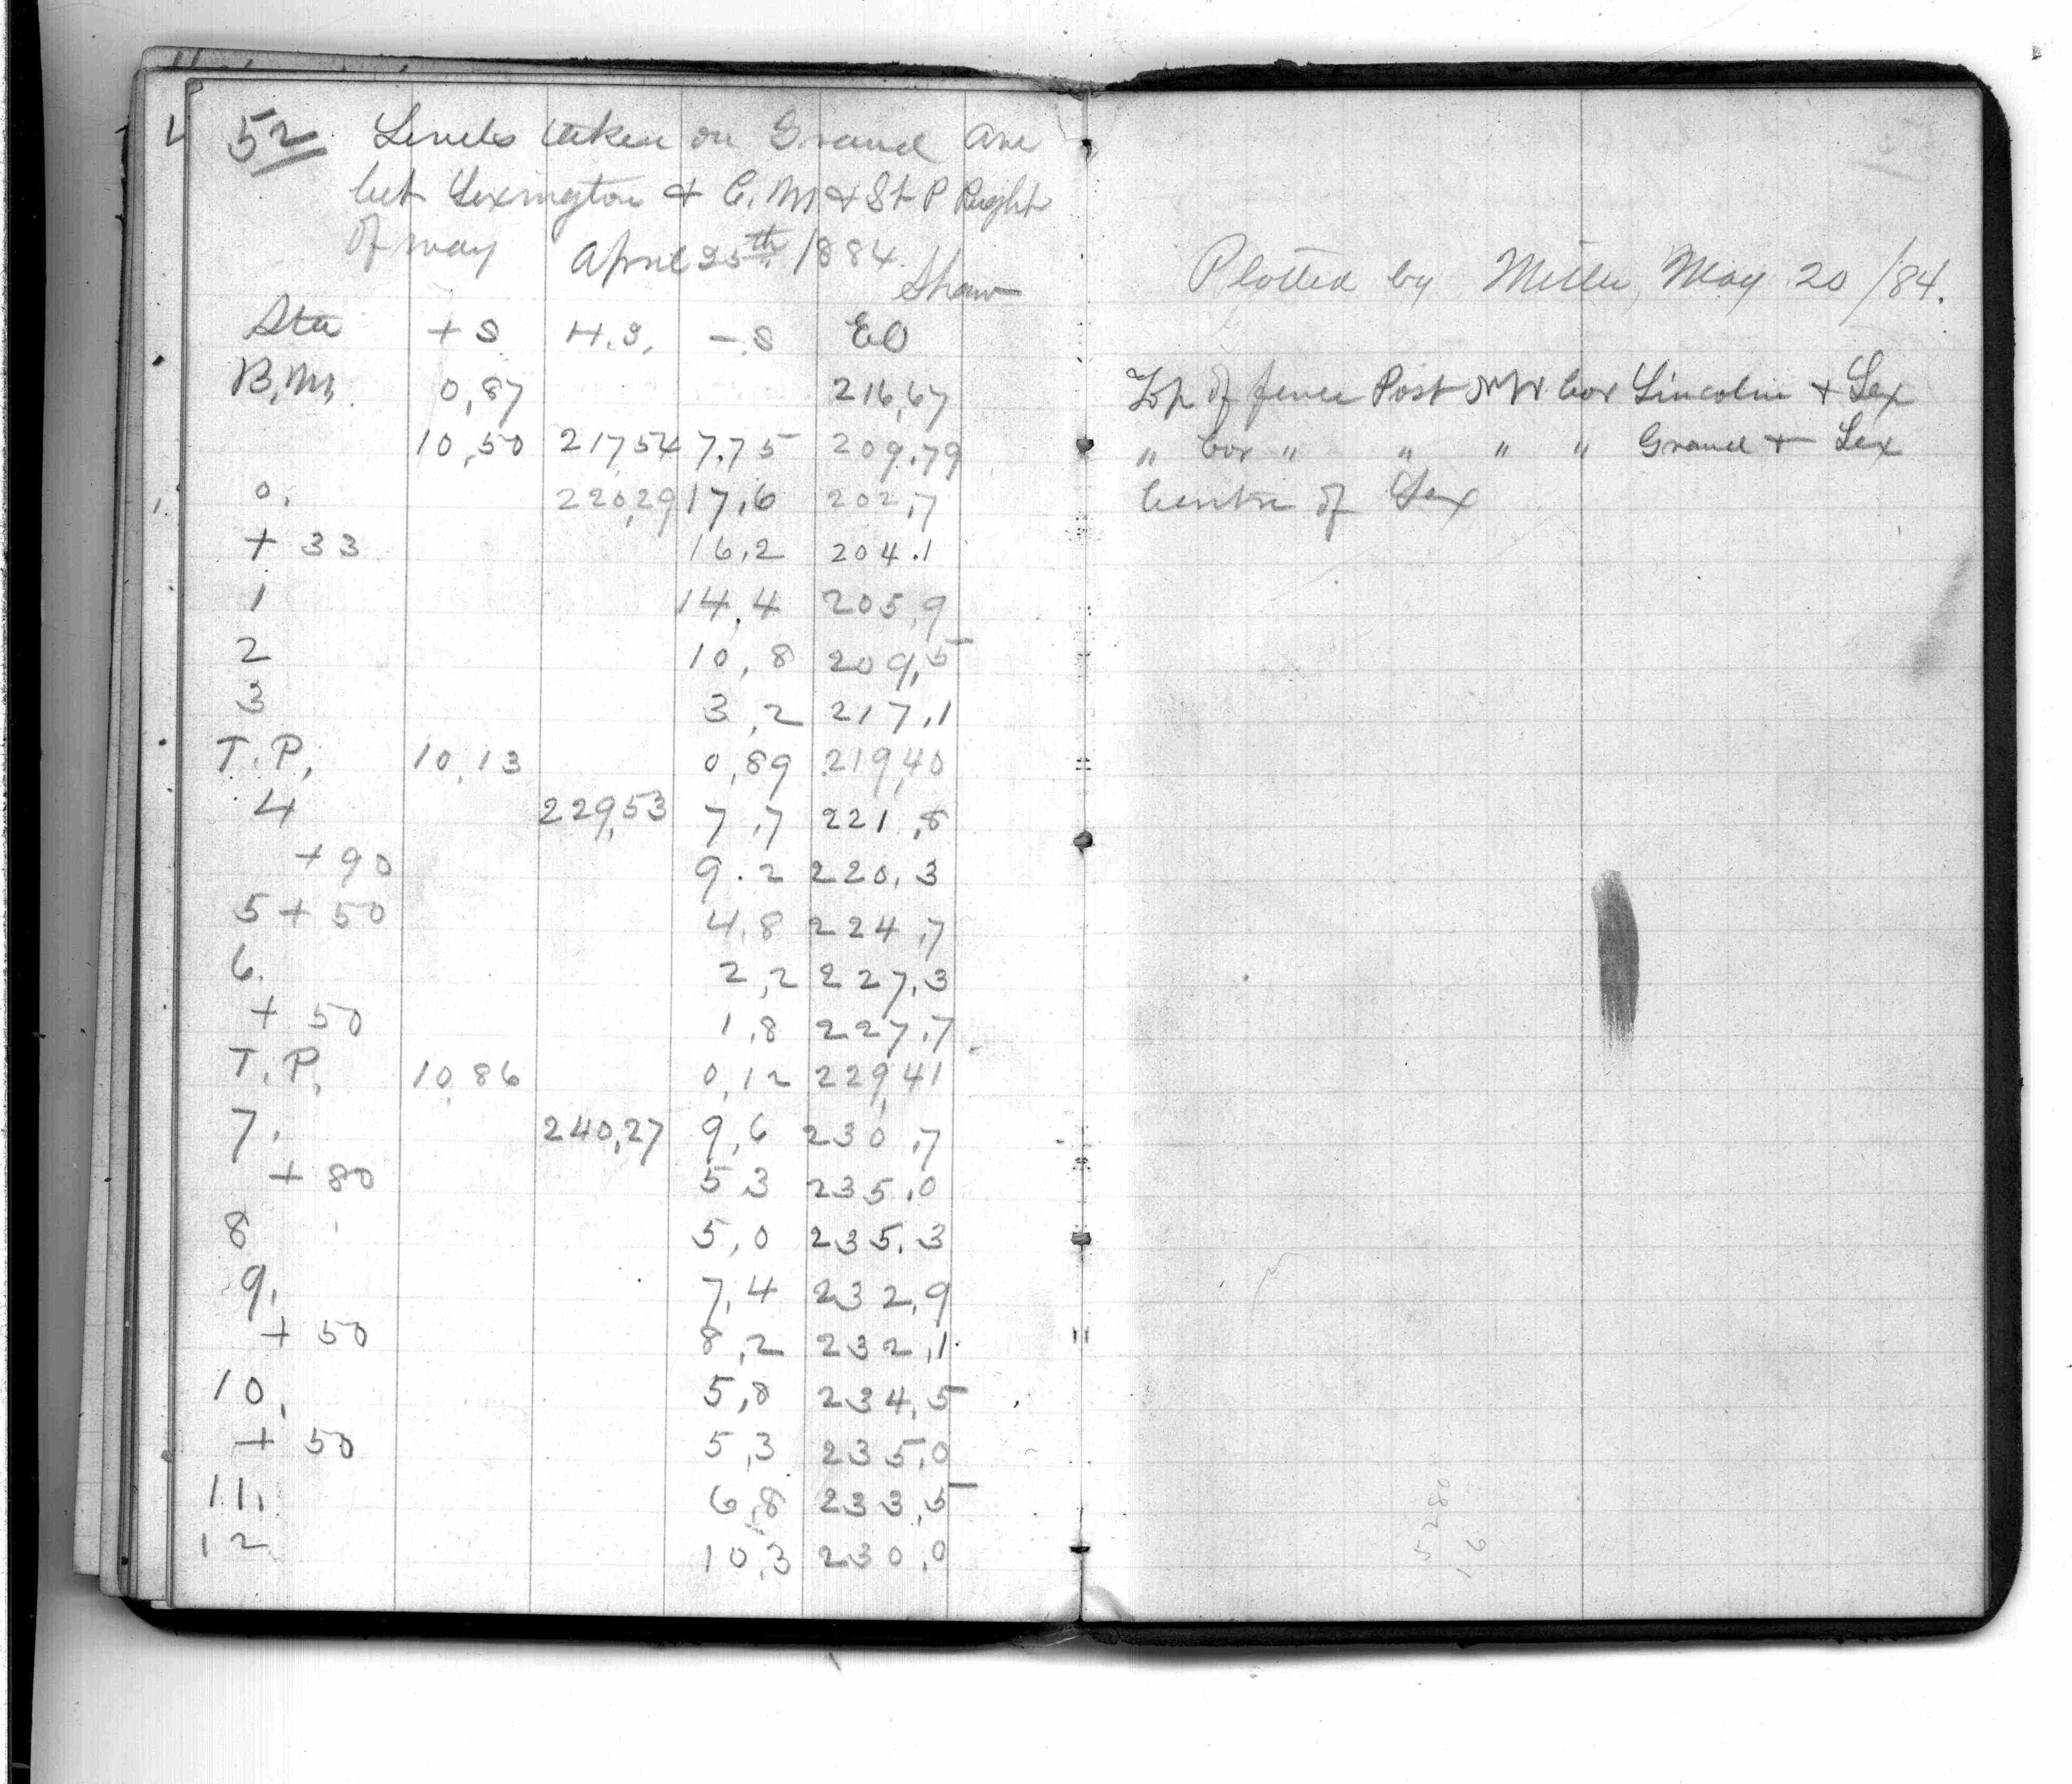 52 Levels taken on Grand Ave
bet Lexington + C. M + St P Right
of way April 25th /884.
Shaw
Sta +S H.I. -.S El
B.M. 0,87 216,67
10,50 217,54 7.75 209.79
0. 220,29 17,6 202,7
+ 33 16,2 204.1
1 14,4 205,9
2 10,8 209,5
3 3,2 217,1
T.P. 10,13 0,89 219,40
4 229,53 7,7 221,8
+90 9.2 220,3
5+50 4,8 224,7
6. 2,2 227,3
+ 50 1,8 227,7
T.P. 10,86 0,12 229,41
7. 240,27 9,6 230,7
+ 80 5 3 235,0
8 5,0 235.3
9. 7,4 232,9
+ 50 8,2 232,1
10. 5,8 234,5
+ 50 5,3 235,0
11. 6,8 233,5
12 10,3 230,0
Plotted by Miller, May 20 /84.
Top of fence Post N W Cor Lincoln + Lex
" Cor " " " " Grand + Lex
Centre of Lex
5280
16